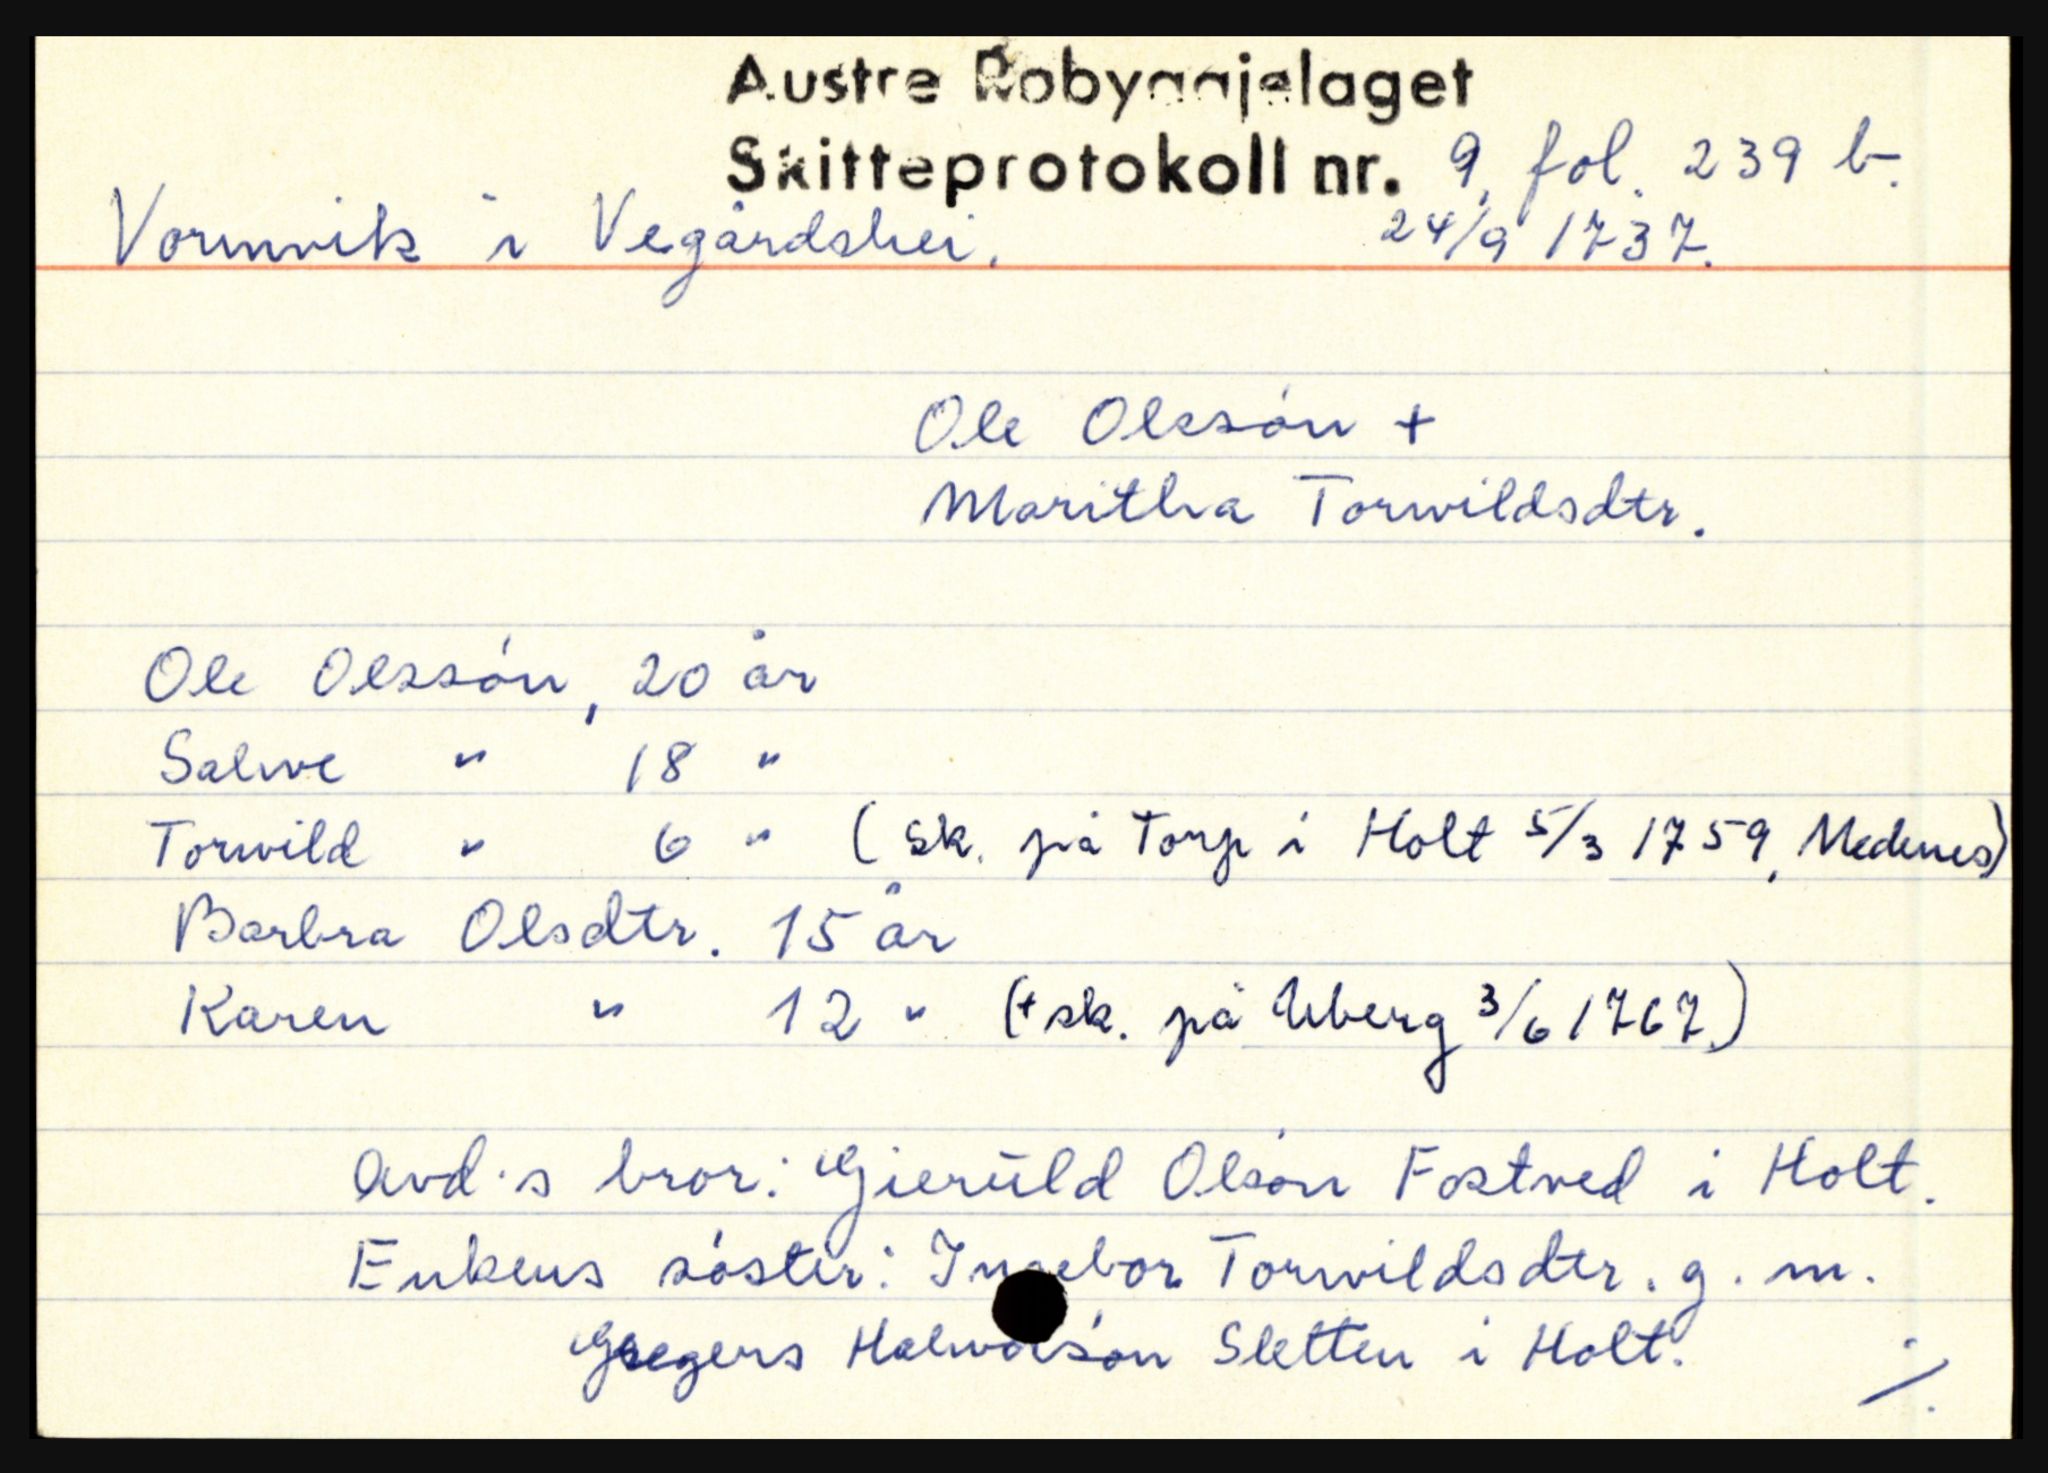 Austre Robyggjelaget
Skifteprotokoll nr. 9, fol. 239 b.
Vormvik i Vegårdshei. 24/9 1737.
Ole Olssón +
Maritha Torwildsdtr.
Ole Olssón, 20 år
Salwe " 18 "
Torwild " 6 " (sk. på Torp i Holt 5/3 1759, Nedenes)
Barbra Olsdtr. 15 år
Karen " 12 " (+ sk. på Uberg 3/6 1767.)
Avd.s bror: Gjerüld Olsón Fostved i Holt.
Enkens sóster: Ingebor Torwildsdtr. g. m.
Gregers Halworsón Sletten i Holt.
./.